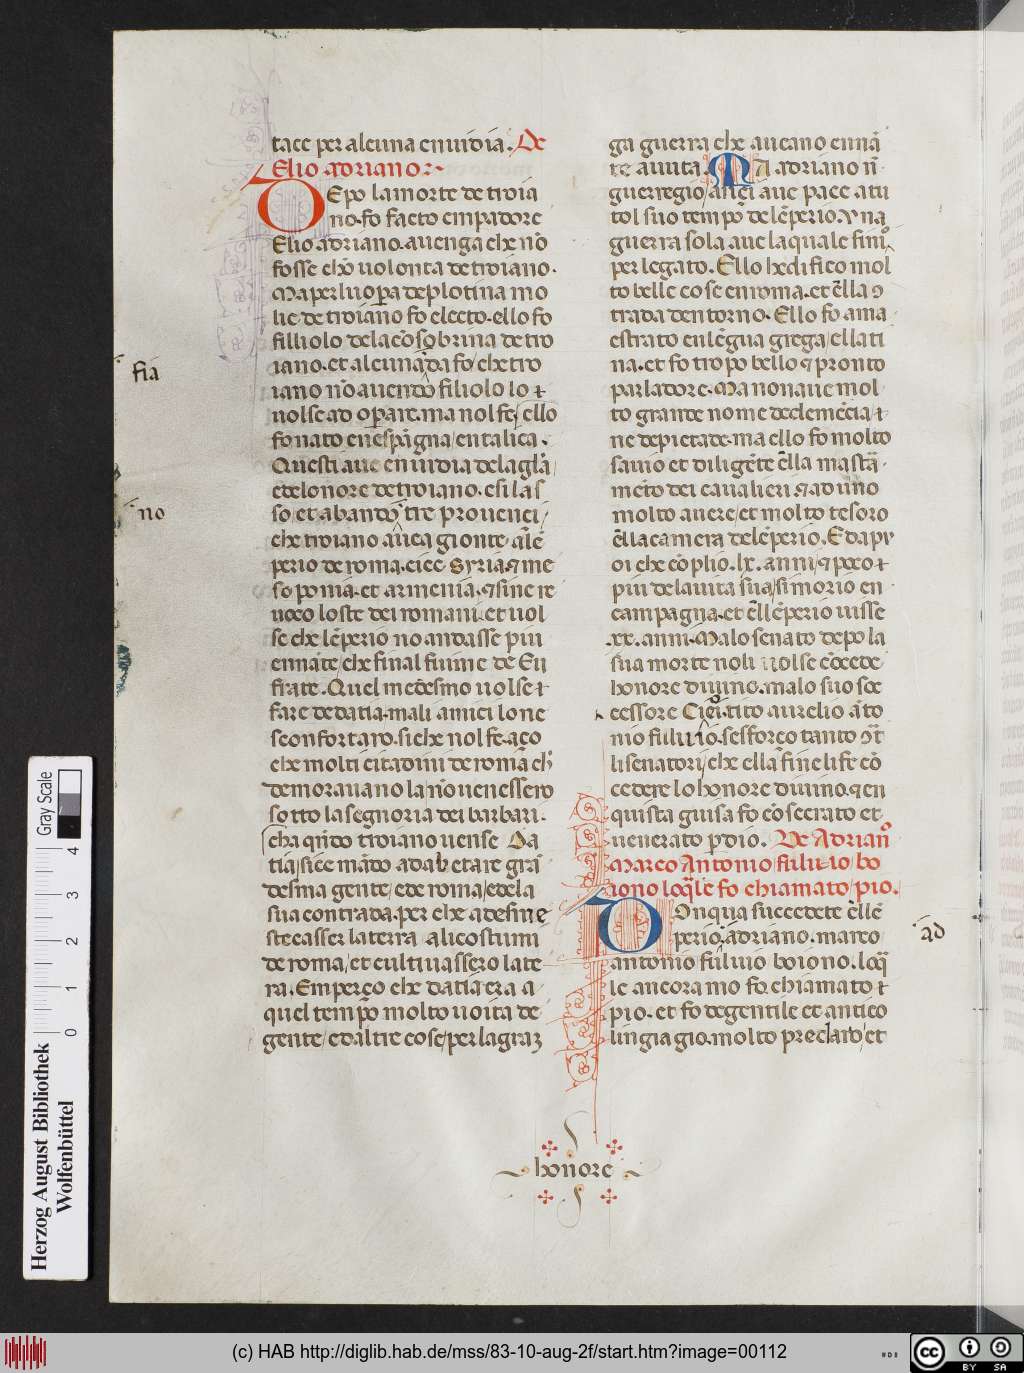 tace per alcuna enuidia. De
Elio adriano.
Depo la morte de troia
no. fo facto empadore
Elio adriano. auenga che nō
fosse chō uolonta de troiano.
Ma per luopa de plotina mo
lie de troiano fo electo. ello fo
filliolo de la cōsobrina de tro
iano. et alcuna da fo che tro
iano nō auendo filiolo lo
nolse adoptare. ma nol fe. ello
fo nato en espāgna en talica.
Questi aue enuidia de la glā
et de lonore de troiano. esi las
so et abando tre prouenci
che troiano auea gionte. a lē
perio de roma. cice Syria. me
sopomia. et armenia. sine re
uoco loste dei romani. et uol
se che lēperio no andasse piu
ennāte che final fiume de Eu
frate. Quel medesmo uolse
fare de datia. mali amici lo ne
sconfortaro. siche nol fe. aço
che molti citadini de romā ch
demorauano la nō uenessero
sotto la segnoria dei barbari.
cha qndo troiano uense Da
tia sice mādo ad abetare grā
desma gente et de roma et de la
sua contrada. per che adefine
stecasser la terra a li costumi
de roma et cultiuassero la te
ra. Emperço che datia era a
quel tempo molto uoita de
gente et daltre cose per la graz
ga guerra che aueano ennā
te auuta. Ma adriano nō
guerregio anci aue pace a tu
tol suo tempo de lēperio. una
guerra sola aue la quale fini
per legato. Ello hedifico mol
to belle cose en roma. et ella
trada dentorno. Ello fo ama
estrato en lēgua grega ella ti
na. et fo tropo bello pronto
parladore. Ma non aue mol
to grande nome de clemēcia
ne de pietade. ma ello fo molto
sauio et diligēte ella mastā
mēto dei caualieri. ad uno
molto auere et molto tesoro
ella camera de lēperio. Eda py
oi che cōplio. lx. anni poco
piu de la uita sua si morio en
campagna. et ellēperio uisse
xx. anni. Malo senato depo la
sua morte no li uolse cōcede
honore diuino. malo suo soc
cessore Ciei. tito aurelio āto
nio fuluio. sesforço tanto
li senatori che ella fine li fe cō
cedere lo honore diuino. en
quista guisa fo cōsecrato et
uenerato p dio. De Adriano
Marco Antonio fuluio bo
iono loqle fo chiamato pio.
Donqua succedete ellē
perio adriano. marco
antonio fuluio boiono. loq
le ancora mo fo chiamato
pio. et fo de gentile et antico
lingiagio. molto preclaro et
fia
no
ad
honore
Herzog August Bibliothek
Wolfenbüttel
Gray Scale
0 1 2 3 4
(c) HAB http://diglib.hab.de/mss/83-10-aug-2f/start.htm?image=00112
cc BY SA